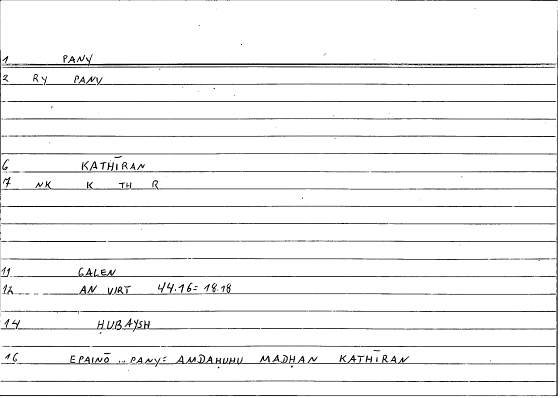 1 PANY
2 RY PANV
6 KATHĪRAN
7 NK K TH R
11 GALEN
12 AN VIRT 44.16= 18.18
14 ḤUBAYSH
16 EPAINŌ .. PANY= AMDAḤUHU MADḤAN KATHĪRAN